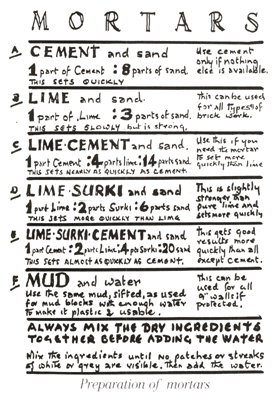 MORTARS
A CEMENT and sand
1 part of Cement : 8 parts of sand.
THIS SETS QUICKLY
Use cement
only if nothing
else is available.
B LIME and sand.
1 part of Lime : 3 parts of sand.
THIS SETS SLOWLY but is strong.
This can be used
for all types of
brick work.
C LIME·CEMENT and sand.
1 part Cement : 4 parts lime : 14 parts sand
THIS SETS NEARLY AS QUICKLY AS CEMENT.
Use this if you
need the mortar
to set more
quickly than lime
D LIME·SURKI and sand
1 part Lime : 2 parts Surki : 6 parts sand
THIS SETS MORE QUICKLY THAN LIME
This is slightly
stronger than
pure lime and
sets more quickly
E LIME·SURKI·CEMENT and sand
1 part Cement : 2 parts Lime : 4 pts Surki : 20 sand
THIS SETS ALMOST AS QUICKLY AS CEMENT.
This gets good
results more
quickly than all
except cement.
F MUD and water
Use the same mud, sifted, as used
for mud blocks with enough water
to make it plastic & usable.
This can be
used for all
9" walls if
protected.
ALWAYS MIX THE DRY INGREDIENTS
TOGETHER BEFORE ADDING THE WATER
Mix the ingredients until no patches or streaks
of white or grey are visible, then add the water.
Preparation of mortars